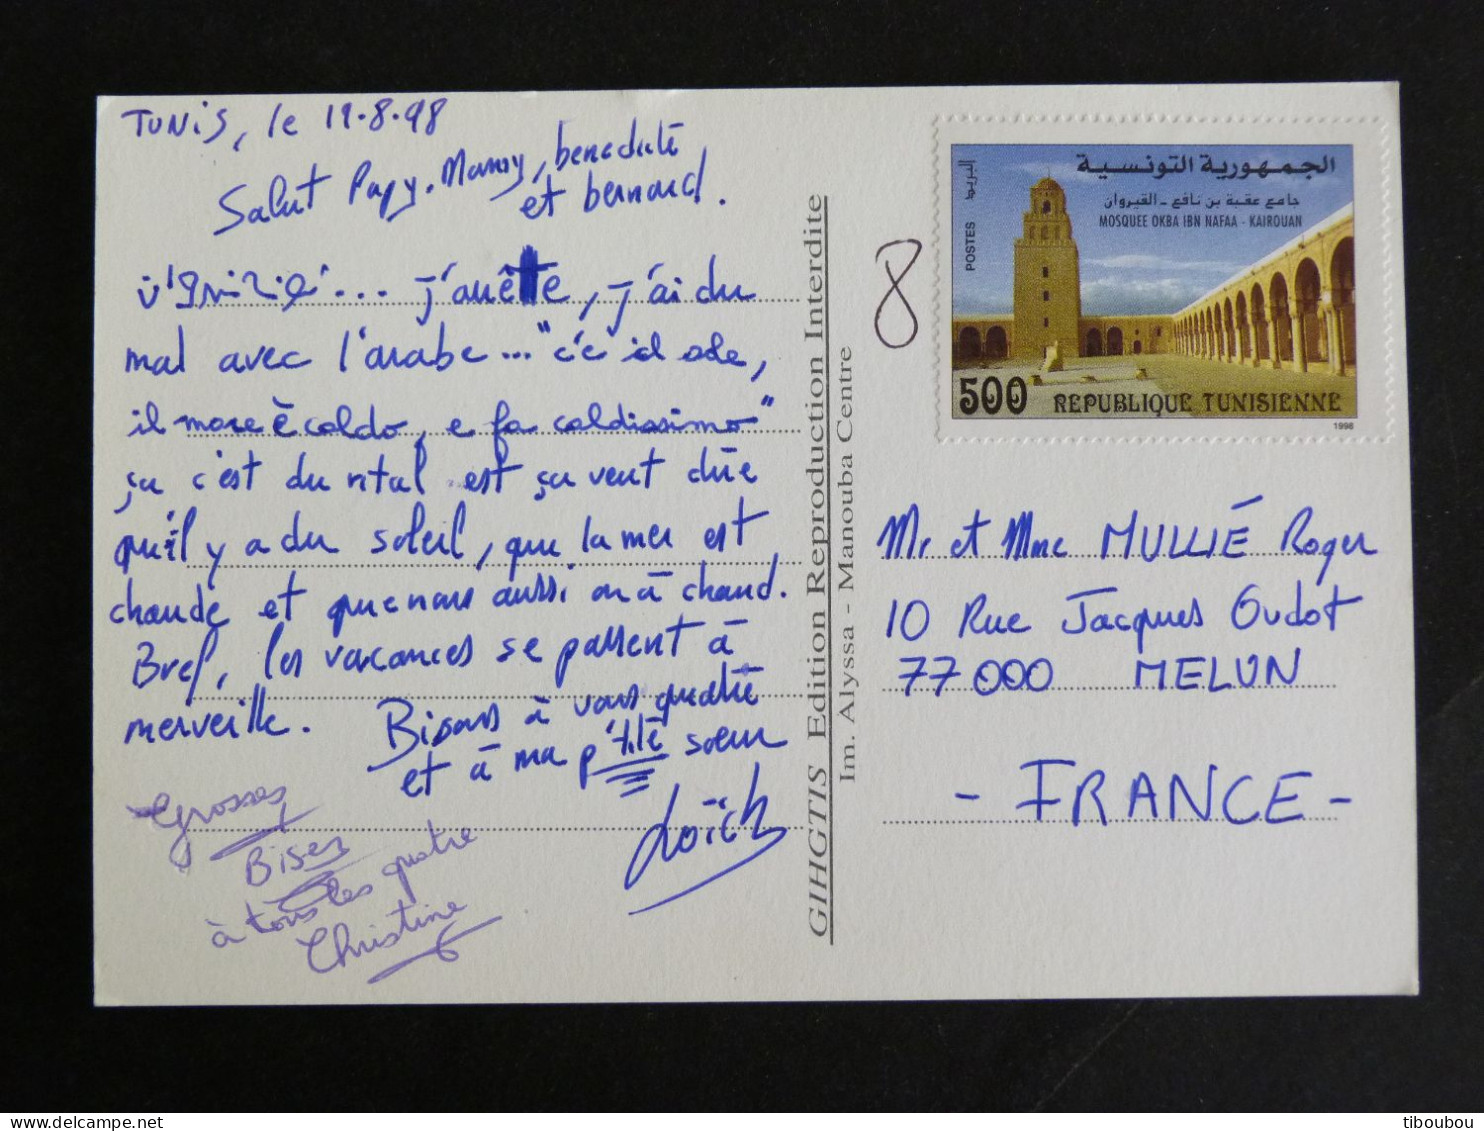 Tunis, le 19.8.98
Salut Papy, Mamy, bénédicte
et bernard.
... j'arrête, j'ai du
mal avec l'arabe ... "c'e il sole,
il mare è caldo, e fa caldissimo"
ça c'est du rital est ça veut dire
qu'il y a du soleil, que la mer est
chaude et que nous aussi on à chaud.
Bref, les vacances se passent à
merveille. Bisous à vous quatre
et à ma p'tite sœur
Loïch
Grosses
Bises
à tous les quatre
Christine
GIHGTIS Edition Reproduction Interdite
Im. Alyssa - Manouba Centre
8
الجمهورية التونسية
البريد
جامع عقبة بن نافع - القيروان
MOSQUEE OKBA IBN NAFAA - KAIROUAN
POSTES
500 REPUBLIQUE TUNISIENNE
1998
Mr et Mme MULLIÉ Roger
10 Rue Jacques Oudot
77000 MELUN
- FRANCE -
tiboubou